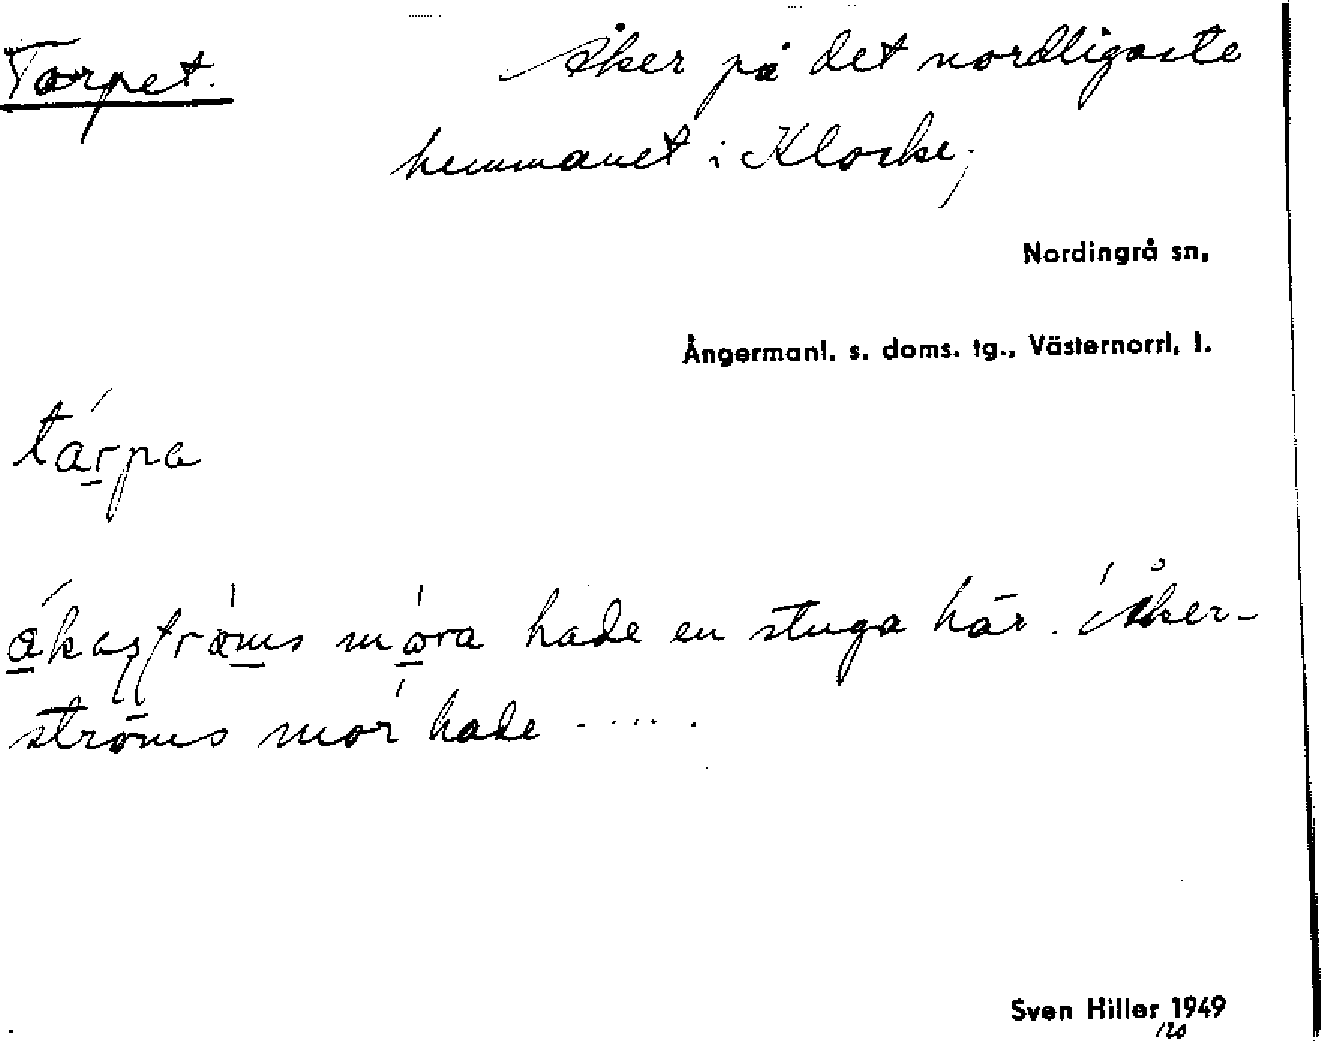 Torpet. Åker på det nordligaste
hemmanet i Klocke;
Nordingrå sn,
Ångermanl. s. doms. tg., Västernorrl. l.
tárpa
hade en stuga här. 'Åker-
ströms mor' hade .....
Sven Hiller 1949
120